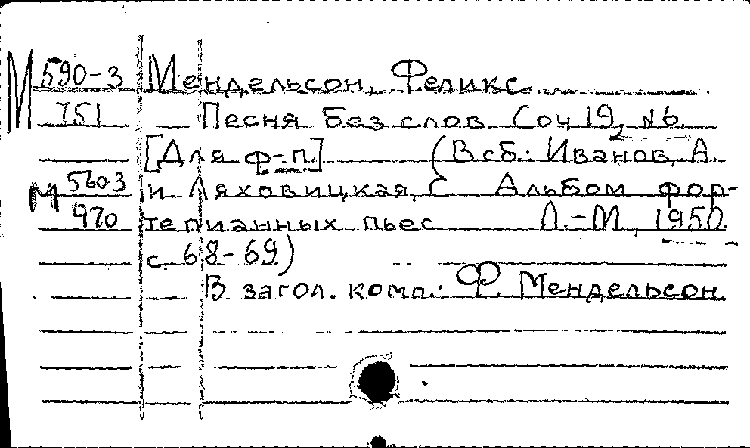 М 590-3 Мендельсон, Феликс.
751 Песня без слов Соч 19, № 6
[Для ф-п.] (В сб.: Иванов, А.
М 560-3 и Ляховицкая, С Альбом фор-
970 тепианных пьес Л.-М, 1950.
с. 68-69)
В загол. комп.: Ф. Мендельсон